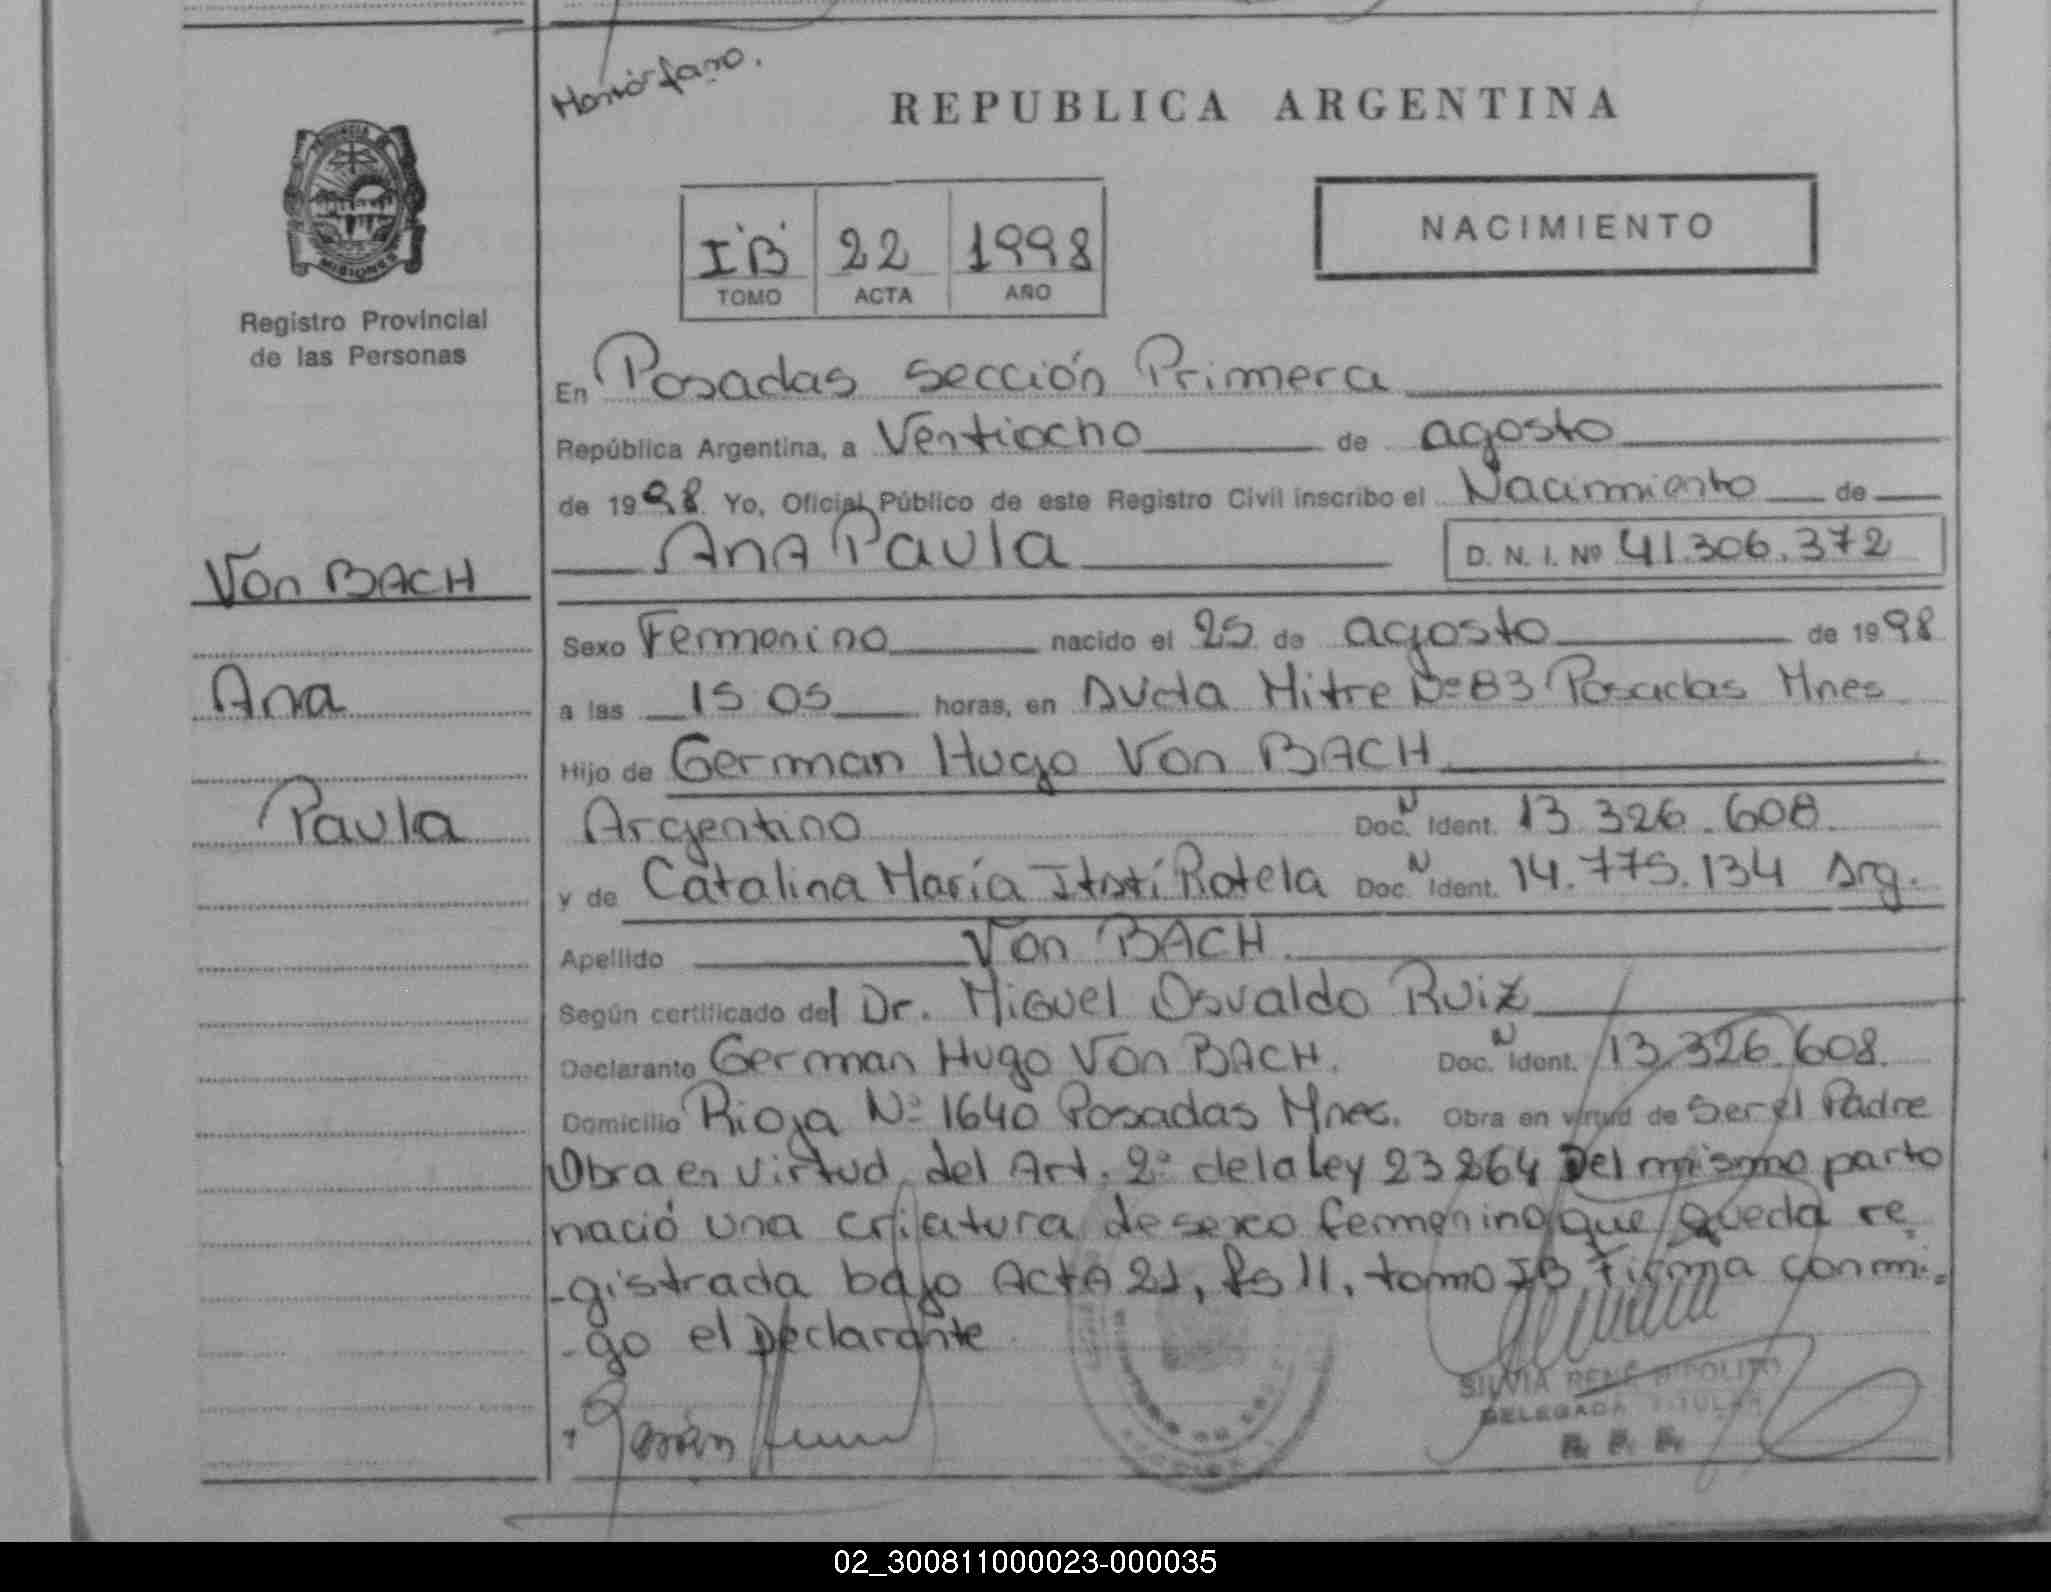 REPUBLICA ARGENTINA
MISIONES
Registro Provincial
de las Personas
I'B' 22 1998
TOMO ACTA AÑO
NACIMIENTO
En Posadas Sección Primera
República Argentina, a Ventiocho de agosto
de 1998 Yo, Oficial Público de este Registro Civil inscribo el Nacimiento de
Ana Paula D. N. I. Nº 41.306.372
Von BACH
Ana
Paula
Sexo Femenino nacido el 25 de agosto de 1998
a las 15 05 horas, en Avda Mitre Nº 83 Posadas Mnes
Hijo de German Hugo Von BACH
Argentino Doc. N Ident. 13.326.608
y de Catalina María Itatí Rotela Doc. N Ident. 14.775.134 Arg.
Apellido Von BACH
Según certificado del Dr. Miguel Osvaldo Ruiz
Declarante German Hugo Von BACH. Doc. N Ident. 13.326.608.
Domicilio Rioja Nº 1640 Posadas Mnes. Obra en virtud de Ser el Padre
Obra en virtud del Art. 2º de la Ley 23264 Del mismo parto
nació una criatura de sexo femenino que queda re
-gistrada bajo Acta 21, fs 11, tomo IB Firma conmi=
-go el Declarante
SILVIA RENÉ HIPOLITO
DELEGADA TITULAR
R. P. P.
02_300811000023-000035